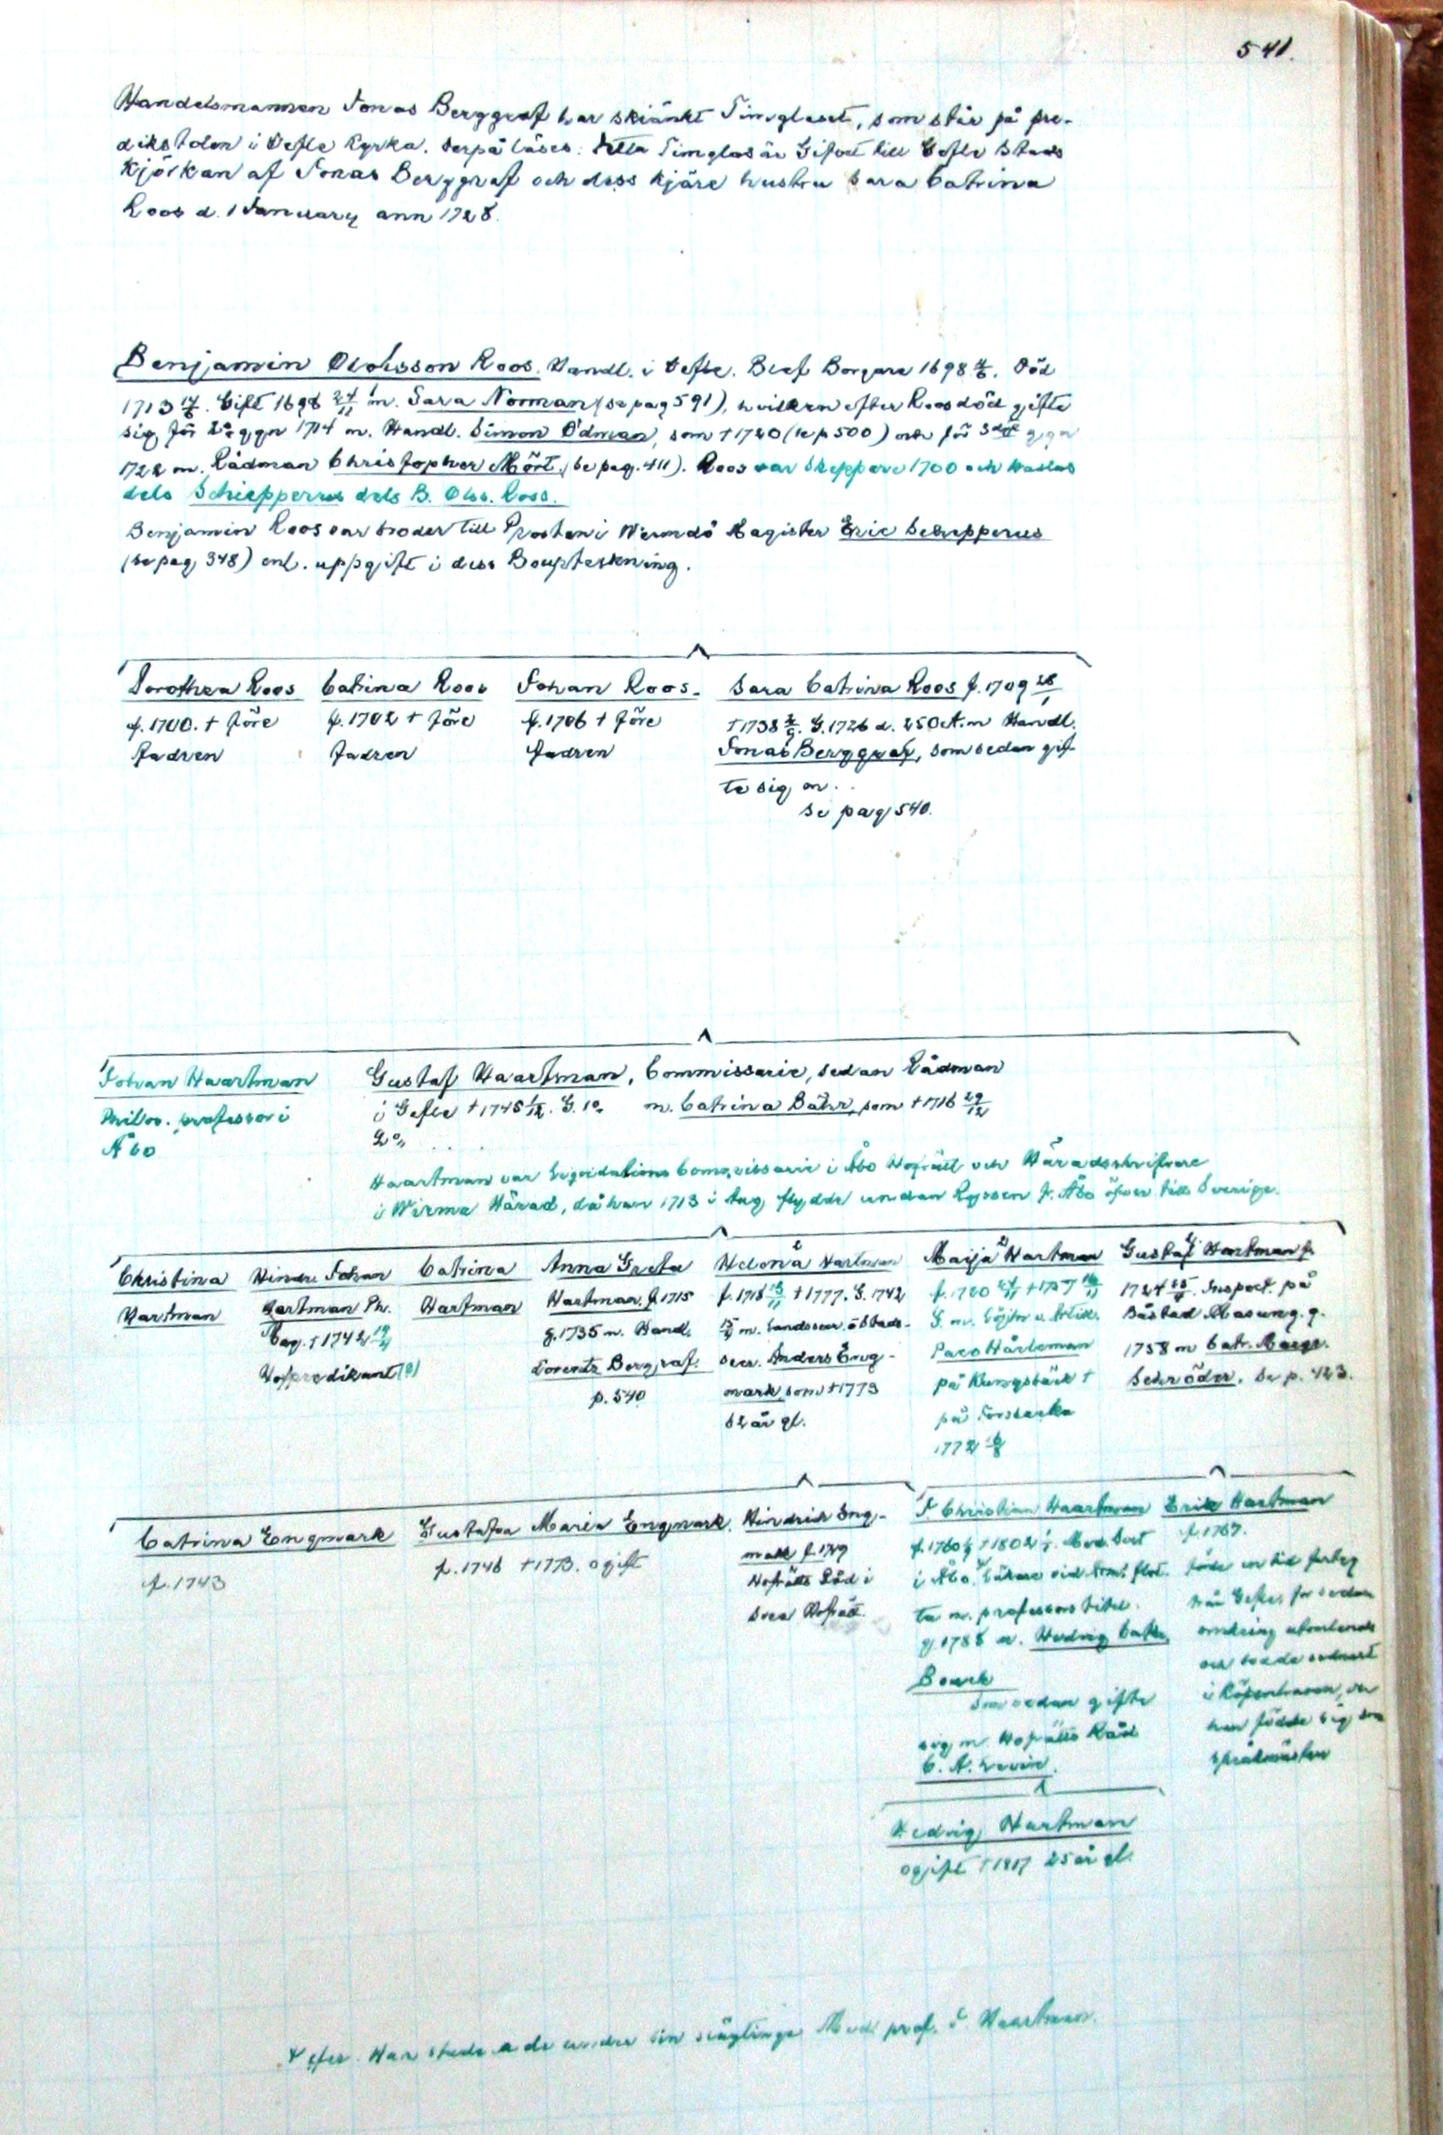 541.
Handelsmannen Jonas Berggraf har skiänkt Timglaset, som står på pre-
dikstolen i Gefle Kyrka. Derpå läses: Detta Timglas är Gifvet till Gefle Stads
Kjörkan af Jonas Berggraf och dess kjäre hustru Sara Catrina
Roos d. 1 January ann 1728.
Benjamin Olofsson Roos. Handl. i Gefle. Blef Borgare 1698. Död
1713. Gift 1698 24/11 m. Sara Norman (se pag 591), hvilken efter Roos död gifte
sig för 2a ggn 1714 m. Handl. Simon Ödman, som † 1720 (se p 500) och för 3dje ggn
1722 m. Rådman Christopher Mört (se pag. 411). Roos var Skeppare 1700 och kallas
dels Schepperus dels B. Olss. Roos.
Benjamin Roos var broder till Prosten i Wermdö Magister Eric Schepperus
(se pag 348) enl. uppgift i dess Bouppteckning.
Dorothea Roos
f. 1700. † före
fadren
Catrina Roos
f. 1702 † före
fadren
Johan Roos.
f. 1706 † före
fadren
Sara Catrina Roos f. 1709 28/1
† 1738. G. 1726 d. 25 Oct. m Handl.
Jonas Berggraf, som sedan gif-
te sig m. . .
se pag 540.
Johan Haartman
Philos. professor i
Åbo
Gustaf Haartman, Commissarie, sedan Rådman
i Gefle † 1745 1/12. G. 1o m. Catrina Bähr, som † 1716 29/12
2o . . .
Haartman var Liqvidations Commissarie i Åbo Hofrätt och Häradsskrifvare
i Wirmo Härad, då han 1713 i Aug flydde undan Ryssen fr. Åbo öfver till Sverige.
Christina
Hartman
Hindr. Johan
Hartman Ph.
Mag. † 1742
Hofpredikant (?)
Catrina
Hartman
Anna Greta
Hartman. f. 1715
g. 1735 m. Handl.
Lorentz Bergraf.
p. 540
Helena Hartman
f. 1718 13/11 † 1777. G. 1742
m. Landssecr. o Stads-
secr. Anders Eng-
mark, som † 1773
52 år gl.
Maija Hartman
f. 1720 † 1757
G. m. Löjtn v. Artill.
Paco Hårleman
på Kungsbäck †
på Forsbacka
1772
Gustaf Hartman f.
1724. Inspect. på
Båstad Masung. g.
1758 m Catr. Marg.
Schröder. Se p. 423.
Catrina Engmark
f. 1743
Gustafva Maria Engmark.
f. 1746 † 1773. ogift
Hindrick Eng-
mark f. 1749
Hofrätts Råd i
Svea Hofrätt.
J Christian Haartman
f. 1760 † 1802. Med. Doct
i Åbo. Läkare vid Armé flot-
ta m. professors titel.
g. 1788 m. Hedvig Cath.
Bouck
som sedan gifte
sig m. Hofrätts Råd
C. A.
Erik Hartman
f. 1767.
förde en tid
från Gefle, for sedan
omkring utomlands
och bodde sednast
i Köpenhamn, der
han födde sig som
språkmästare
Hedvig Hartman
ogift † 1817 25 år gl.
Han studerade under sin släktinge Med. prof. J. Haartman.